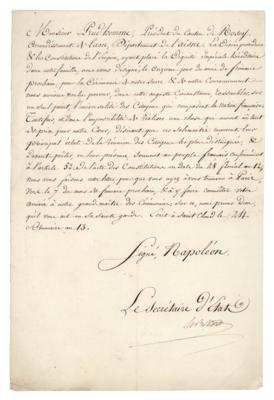 Monsieur Prudhomme, Président du Canton de Rosoy,
Arrondissement de Laon, Département de l'aisne. La divine providence
& les Constitutions de l'Empire, ayant placé la Dignité Impériale héréditaire
dans notre famille, nous avons désigné le
prochain, pour la Cérémonie de notre Sacre & de notre Couronnement.
nous aurions voulu pouvoir, dans cette auguste Circonstance, rassembler sur
un seul point l'universalité des Citoyens qui composent la Nation française.
Toutefois, & dans l'impossibilité de réaliser une chose qui aurait eu tant
de prix pour notre Cœur, désirant que ces Solemnités reçoivent leur
principal éclat de la réunion des Citoyens les plus distingués, &
devant prêter en leur présence, serment au peuple français conformément
à l'article 52 de l'acte des Constitutions en date du 28 floréal an 12,
nous vous faisons cette lettre pour que vous ayez à vous trouver à Paris
le 7 du mois de frimaire prochain, & à y faire connaître votre
arrivée à notre grand-maître des Cérémonies, sur ce, nous prions Dieu
qu'il vous ait en sa sainte garde. Écrit à Saint Cloud le 24.
Brumaire an 13.
Signé, Napoléon.
Le Secrétaire d'État